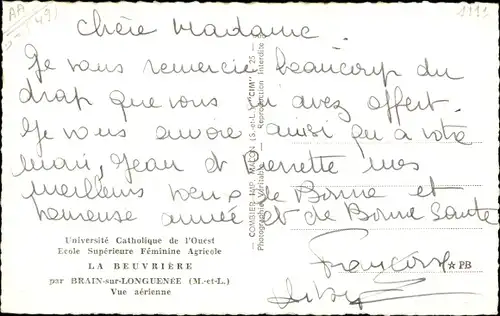 Chère Madame.
Je vous remercie beaucoup du
drap que vous m'avez offert.
Je vous envoie ainsi qu'à votre
mari, Jean et Pierrette mes
meilleurs voeux de Bonne et
heureuse année et de Bonne Santé
Françoise
Université Catholique de l'Ouest
Ecole Supérieure Féminine Agricole
LA BEUVRIÈRE
par BRAIN-sur-LONGUENÉE (M.-et-L.)
Vue aérienne
COMBIER IMP. MACON (S.-et-L.) "CIM"
Photographie Véritable - Reproduction Interdite
☆ PB